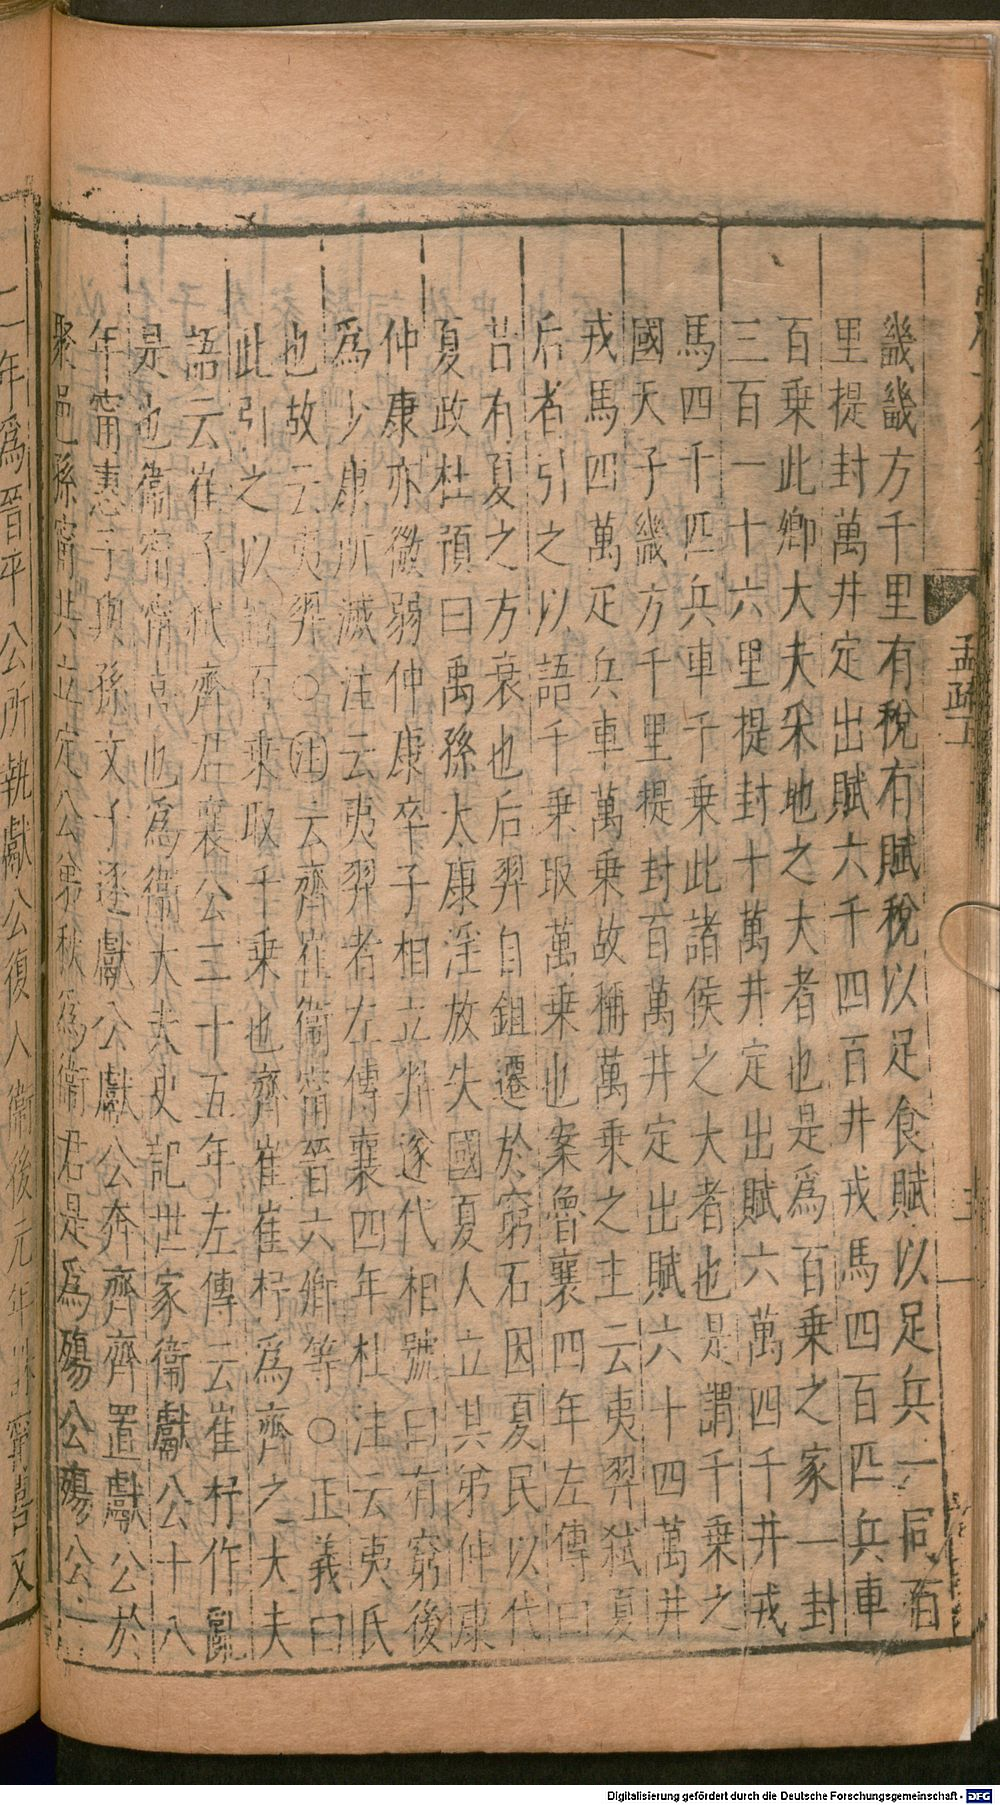 孟疏一
畿畿方千里有稅有賦稅以足食賦以足兵一同百
里提封萬井定出賦六千四百井戎馬四百匹兵車
百乗此卿大夫采地之大者也是爲百乗之家一封
三百一十六里提封十萬井定出賦六萬四千井戎
馬四千匹兵車千乗此諸侯之大者也是謂千乗之
國天子畿方千里提封百萬井定出賦六十四萬井
戎馬四萬疋兵車萬乗故稱萬乗之主云夷羿弑夏
后者引之以語千乗取萬乗也案魯襄四年左傳曰
昔有夏之方衰也后羿自鉏遷於窮石因夏民以代
夏政杜預曰禹孫太康淫放失國夏人立其弟仲康
仲康亦微弱仲康卒子相立羿遂代相號曰有窮後
爲少康所滅注云夷羿者左傳襄四年杜注云夷氏
也故云夷羿○注云齊崔衞甯晉六卿等○正義曰
此引之以語百乗取千乗也齊崔崔杼爲齊之大夫
語云崔子弑齊君襄公二十五年左傳云崔杼作亂
是也衞甯甯喜也爲衞大夫史記世家衞獻公十八
年甯惠子與孫文子逐獻公獻公奔齊齊置獻公於
聚邑孫甯共立定公弟秋爲衞君是爲殤公殤公
二年爲晉平公所執獻公復入衞後元年誅甯喜又
Digitalisierung gefördert durch die Deutsche Forschungsgemeinschaft - DFG